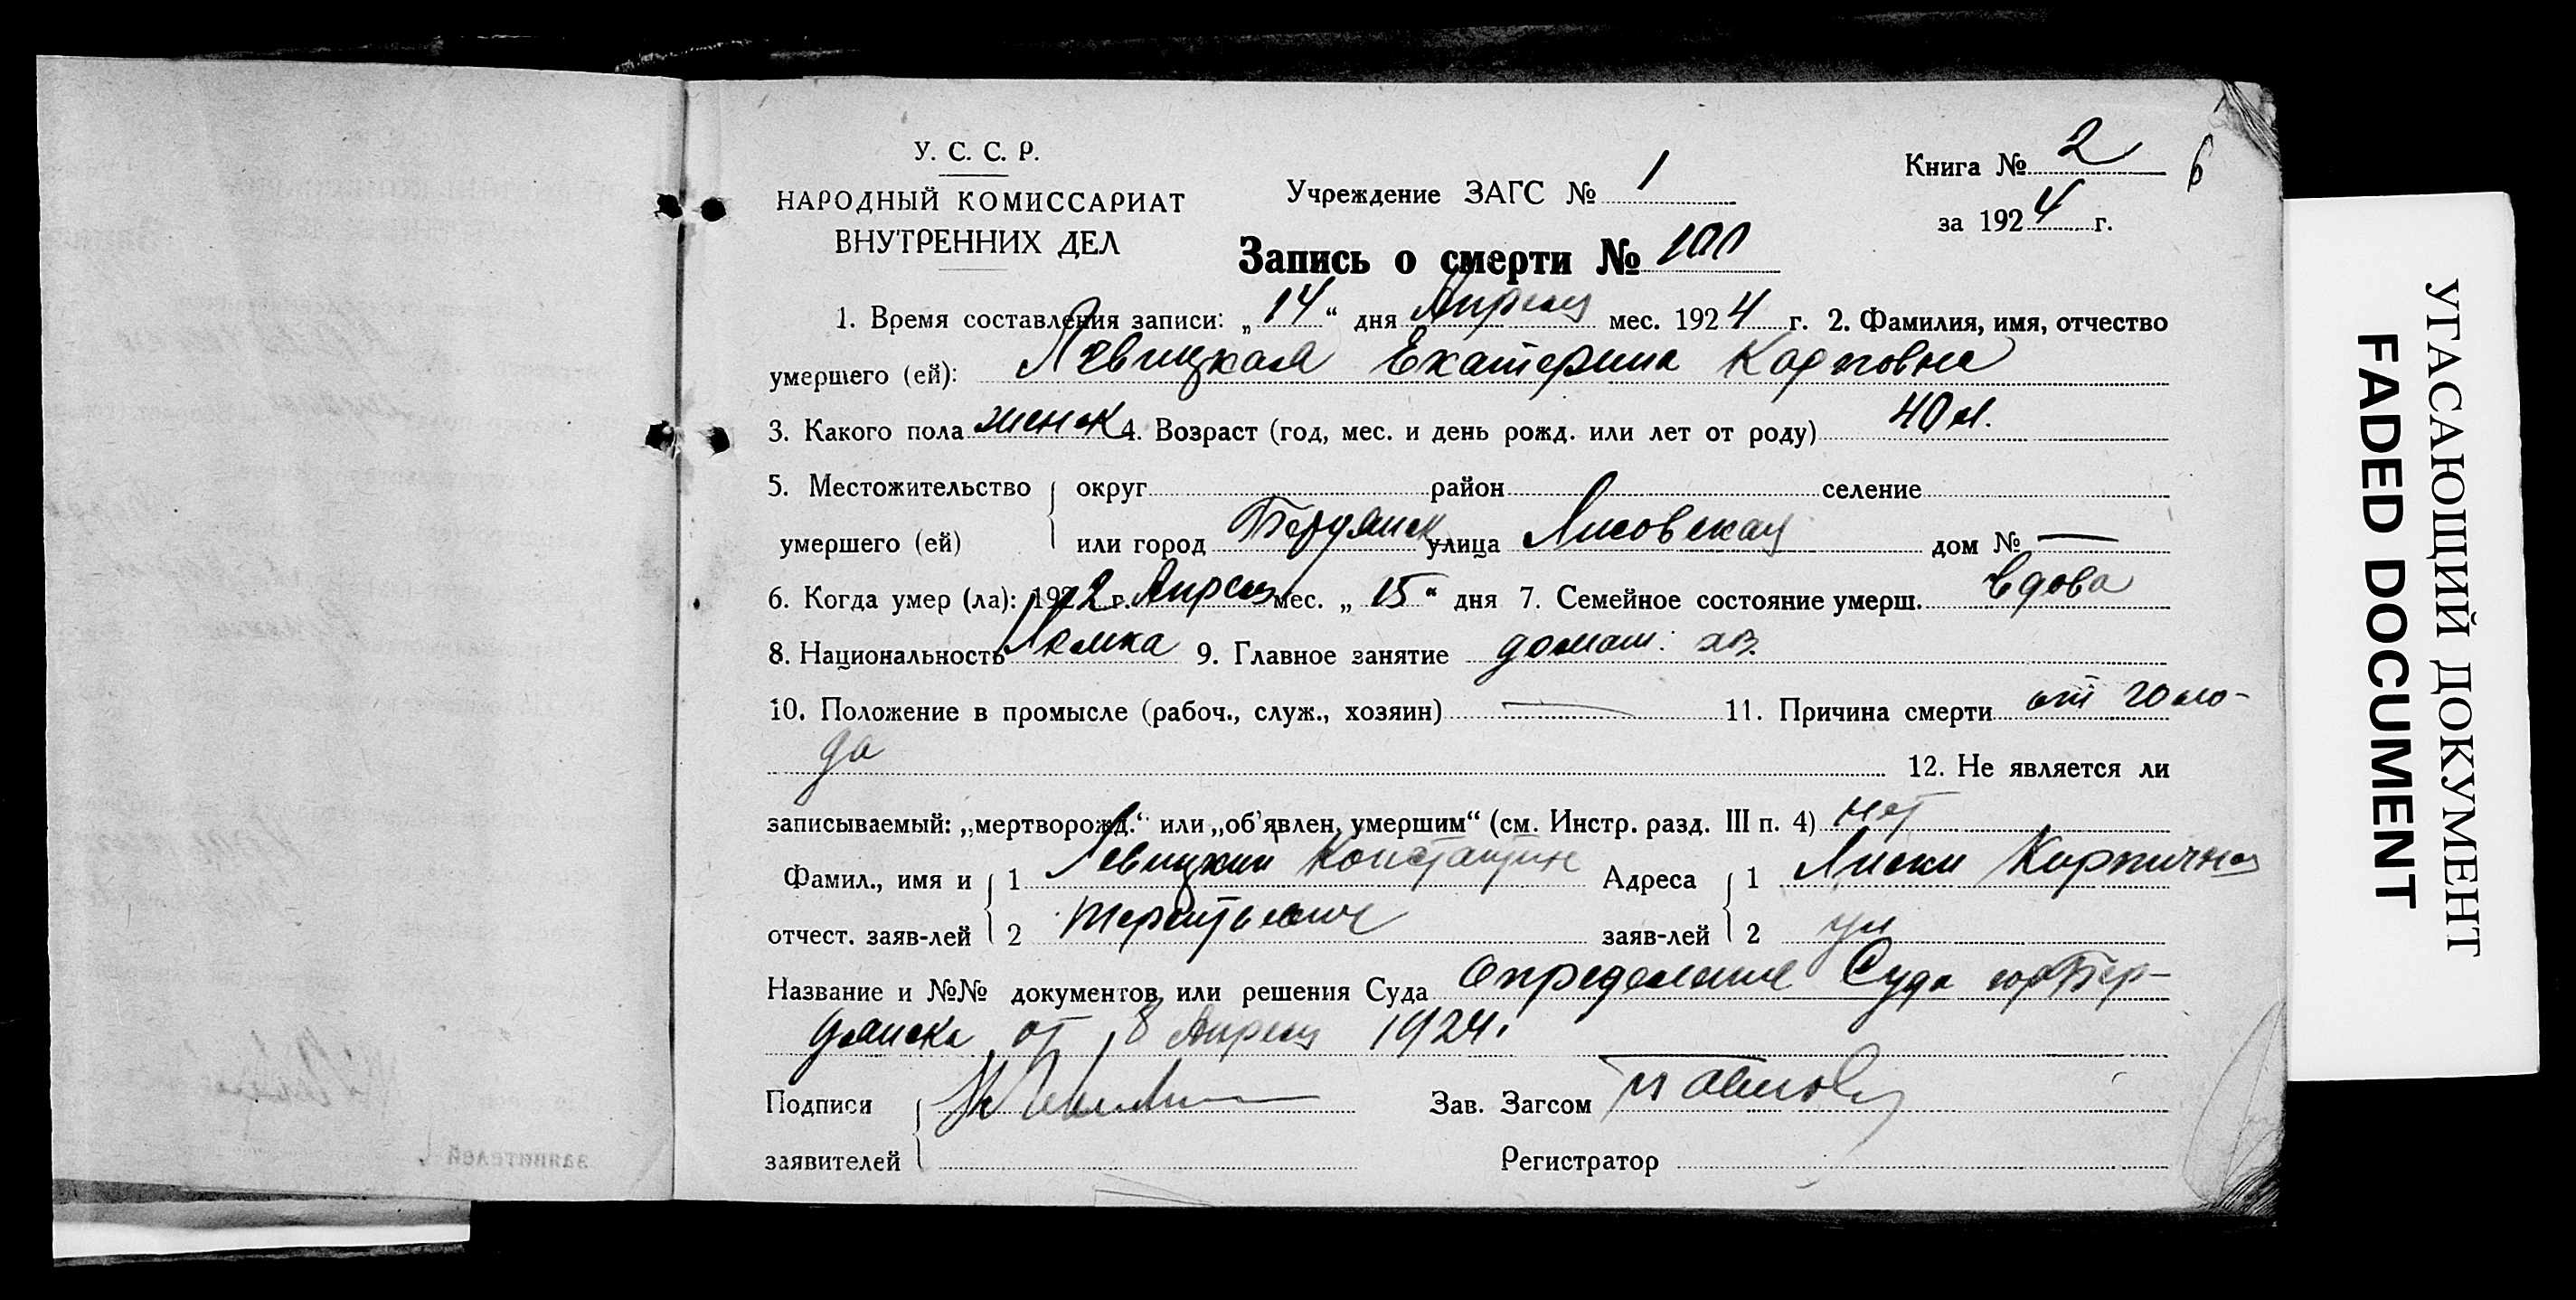 У. С. С. Р.
НАРОДНЫЙ КОМИССАРИАТ
ВНУТРЕННИХ ДЕЛ
Учреждение ЗАГС № 1
Книга № 2 6
за 1924 г.
Запись о смерти № 100
1. Время составления записи: „14“ дня Апреля мес. 1924 г. 2. Фамилия, имя, отчество
умершего (ей): Левицкая Екатерина Карповна
3. Какого пола женск 4. Возраст (год, мес. и день рожд. или лет от роду) 40 л.
5. Местожительство округ район селение
умершего (ей) или город Бердянск улица Лисовская дом № —
6. Когда умер (ла): 1922 г. Апреля мес. „15“ дня 7. Семейное состояние умерш. вдова
8. Национальность 9. Главное занятие домаш. хоз.
10. Положение в промысле (рабоч., служ., хозяин) — 11. Причина смерти от голо-
да
12. Не является ли
записываемый: „мертворожд.“ или „об'явлен, умершим“ (см. Инстр. разд. III п. 4) нет
Фамил., имя и 1 Левицкий Константин Адреса 1 Лиски Кирпичная
отчест. заяв-лей 2 Терентьевич заяв-лей 2 ул
Название и №№ документов или решения Суда Определение Суда гор Бер-
дянска от 8 Апреля 1924.
Подписи Зав. Загсом
заявителей Регистратор
заявителей
УГАСАЮЩИЙ ДОКУМЕНТ
FADED DOCUMENT